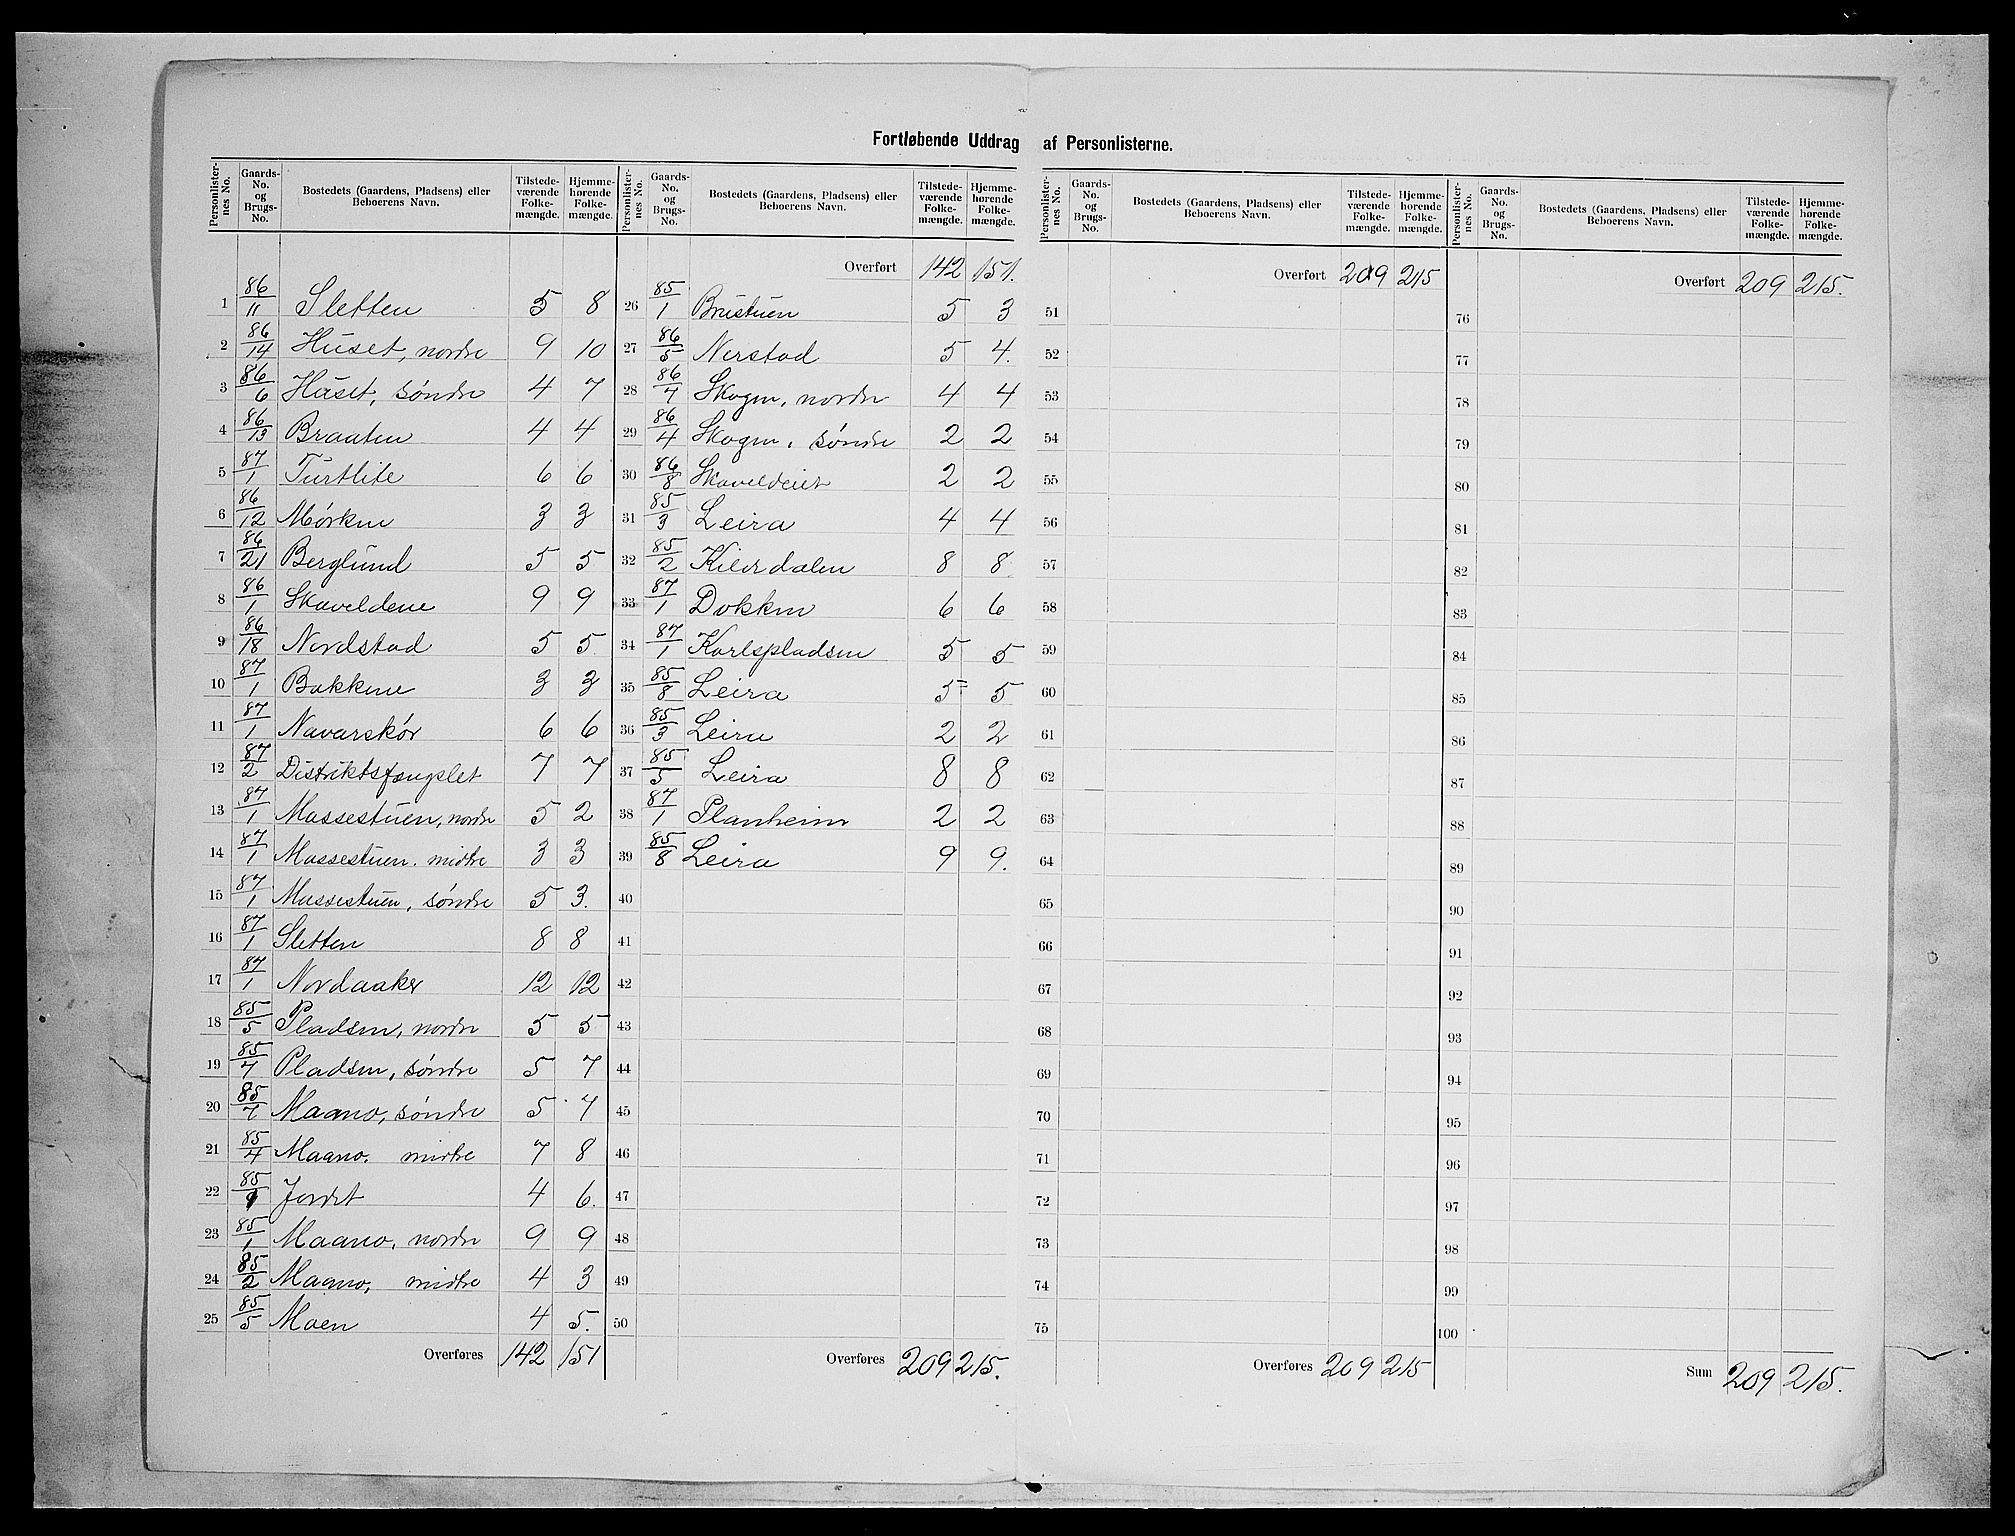 Fortløbende Uddrag af Personlisterne.
Personlister-nes No. Gaards-No. og Brugs-No. Bostedets (Gaardens, Pladsens) eller Beboerens Navn. Tilstede-værende Folke-mængde. Hjemme-hørende Folke-mængde.
1 86/11 Sletten 5 8
2 86/14 Huset, nordre 9 10
3 86/6 Huset, søndre 4 7
4 86/13 Braaten 4 4
5 87/1 Turtlite 6 6
6 86/12 Mørken 3 3
7 86/21 Berglund 5 5
8 86/1 Skaveldene 9 9
9 86/18 Nordstad 5 5
10 87/1 Bakkene 3 3
11 87/1 Navarskør 6 6
12 87/2 Distriktsfængslet 7 7
13 87/1 Massestuen, nordre 5 2
14 87/1 Massestuen. midtre 3 3
15 87/1 Massestuen, søndre 5 3.
16 87/1 Sletten 8 8
17 87/1 Nordaaker 12 12
18 85/5 Pladsen, nordre 5 5
19 85/7 Pladsen, søndre 5 7
20 85/7 Maano, søndre 5 7
21 85/4 Maano, midtre 7 8
22 85/9 Jordet 4 6.
23 85/1 Maano, nordre 9 9
24 85/2 Maano, midtre 4 3
25 85/5 Moen 4 5.
Overføres 142 151
Personlister-nes No. Gaards-No. og Brugs-No. Bostedets (Gaardens, Pladsens) eller Beboerens Navn. Tilstede-værende Folke-mængde. Hjemme-hørende Folke-mængde.
Overført 142 151.
26 85/1 Brustuen 5 3
27 86/5 Nerstad 5 4.
28 86/7 Skogen, nordre 4 4
29 86/4 Skogen, søndre 2 2
30 86/8 Skaveldeiet 2 2
31 85/3 Leira 4 4
32 85/2 Kilesdalen 8 8
33 87/1 Dokken 6 6
34 87/1 Karlspladsen 5 5
35 85/8 Leira 5 5
36 85/3 Leira 2 2
37 85/5 Leira 8 8
38 87/1 Planheim 2 2
39 85/8 Leira 9 9.
40
41
42
43
44
45
46
47
48
49
50
Overføres 209 215.
Personlister-nes No. Gaards-No. og Brugs-No. Bostedets (Gaardens, Pladsens) eller Beboerens Navn. Tilstede-værende Folke-mængde. Hjemme-hørende Folke-mængde.
Overført 209 215
51
52
53
54
55
56
57
58
59
60
61
62
63
64
65
66
67
68
69
70
71
72
73
74
75
Overføres 209 215
Personlister-nes No. Gaards-No. og Brugs-No. Bostedets (Gaardens, Pladsens) eller Beboerens Navn. Tilstede-værende Folke-mængde. Hjemme-hørende Folke-mængde.
Overført 209 215.
76
77
78
79
80
81
82
83
84
85
86
87
88
89
90
91
92
93
94
95
96
97
98
99
100
Sum 209 215.